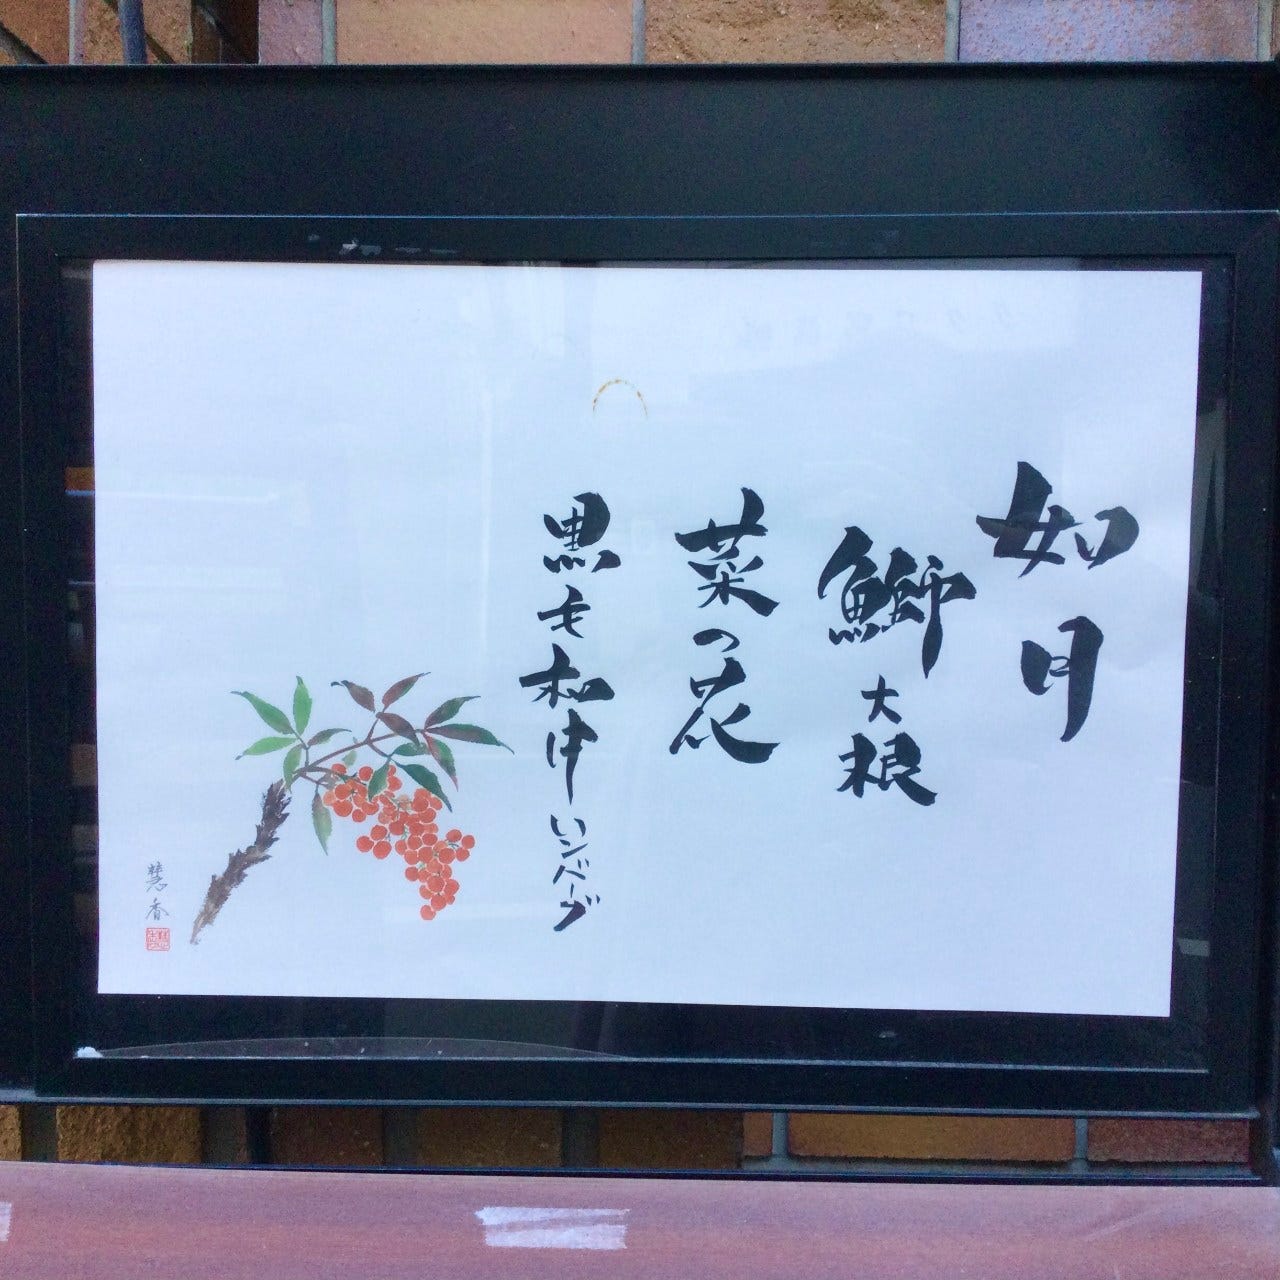 如月
鰤大根
菜の花
黒毛和牛ハンバーグ
慧香